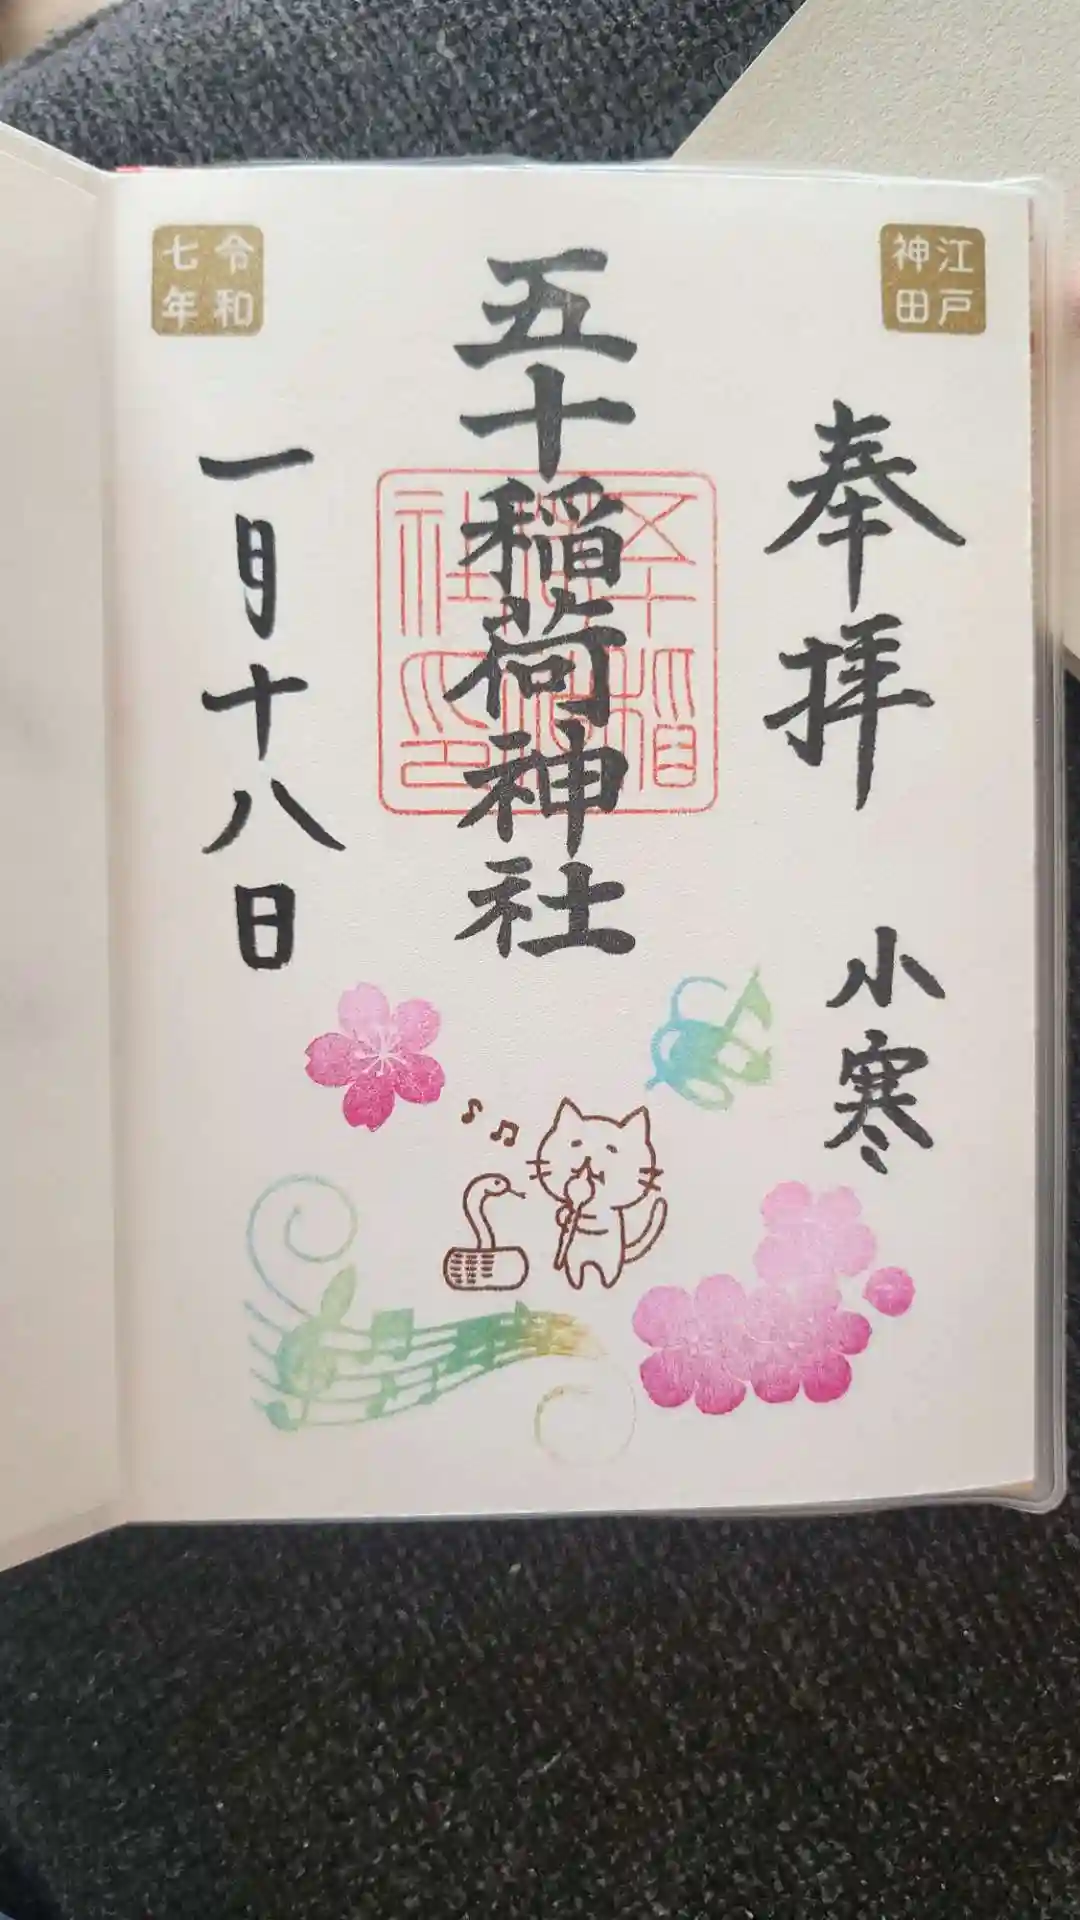 江戸
神田
奉拝
小寒
五十稲荷神社
五十稲
社印
令和
七年
一月十八日